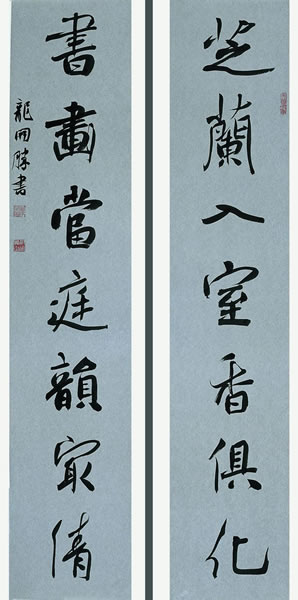 芝蘭入室香俱化
書畫當庭韻寂清
龍開勝書